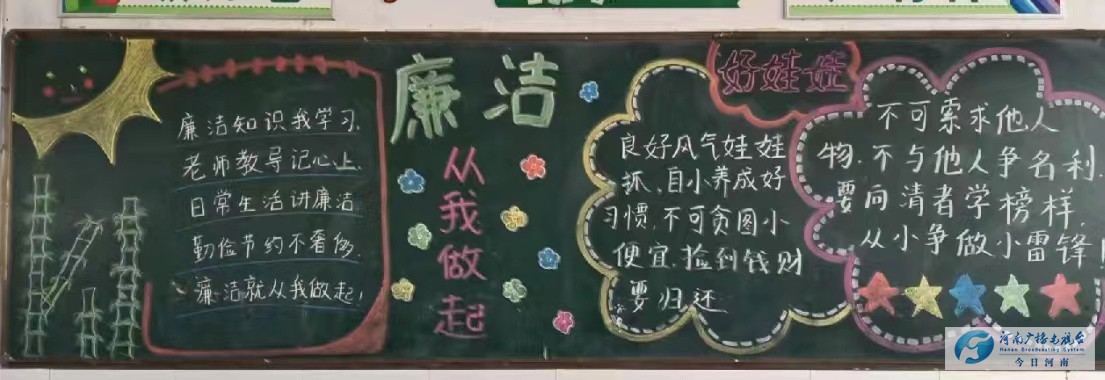 廉洁知识我学习,
老师教导记心上,
日常生活讲廉洁,
勤俭节约不奢侈,
廉洁就从我做起!
廉洁
从我做起
好娃娃
良好风气娃娃
抓,自小养成好
习惯,不可贪图小
便宜,捡到钱财
要归还
不可索求他人
物,不与他人争名利,
要向清者学榜样,
从小争做小雷锋!
河南广播电视台
Henan Broadcasting System
今日河南